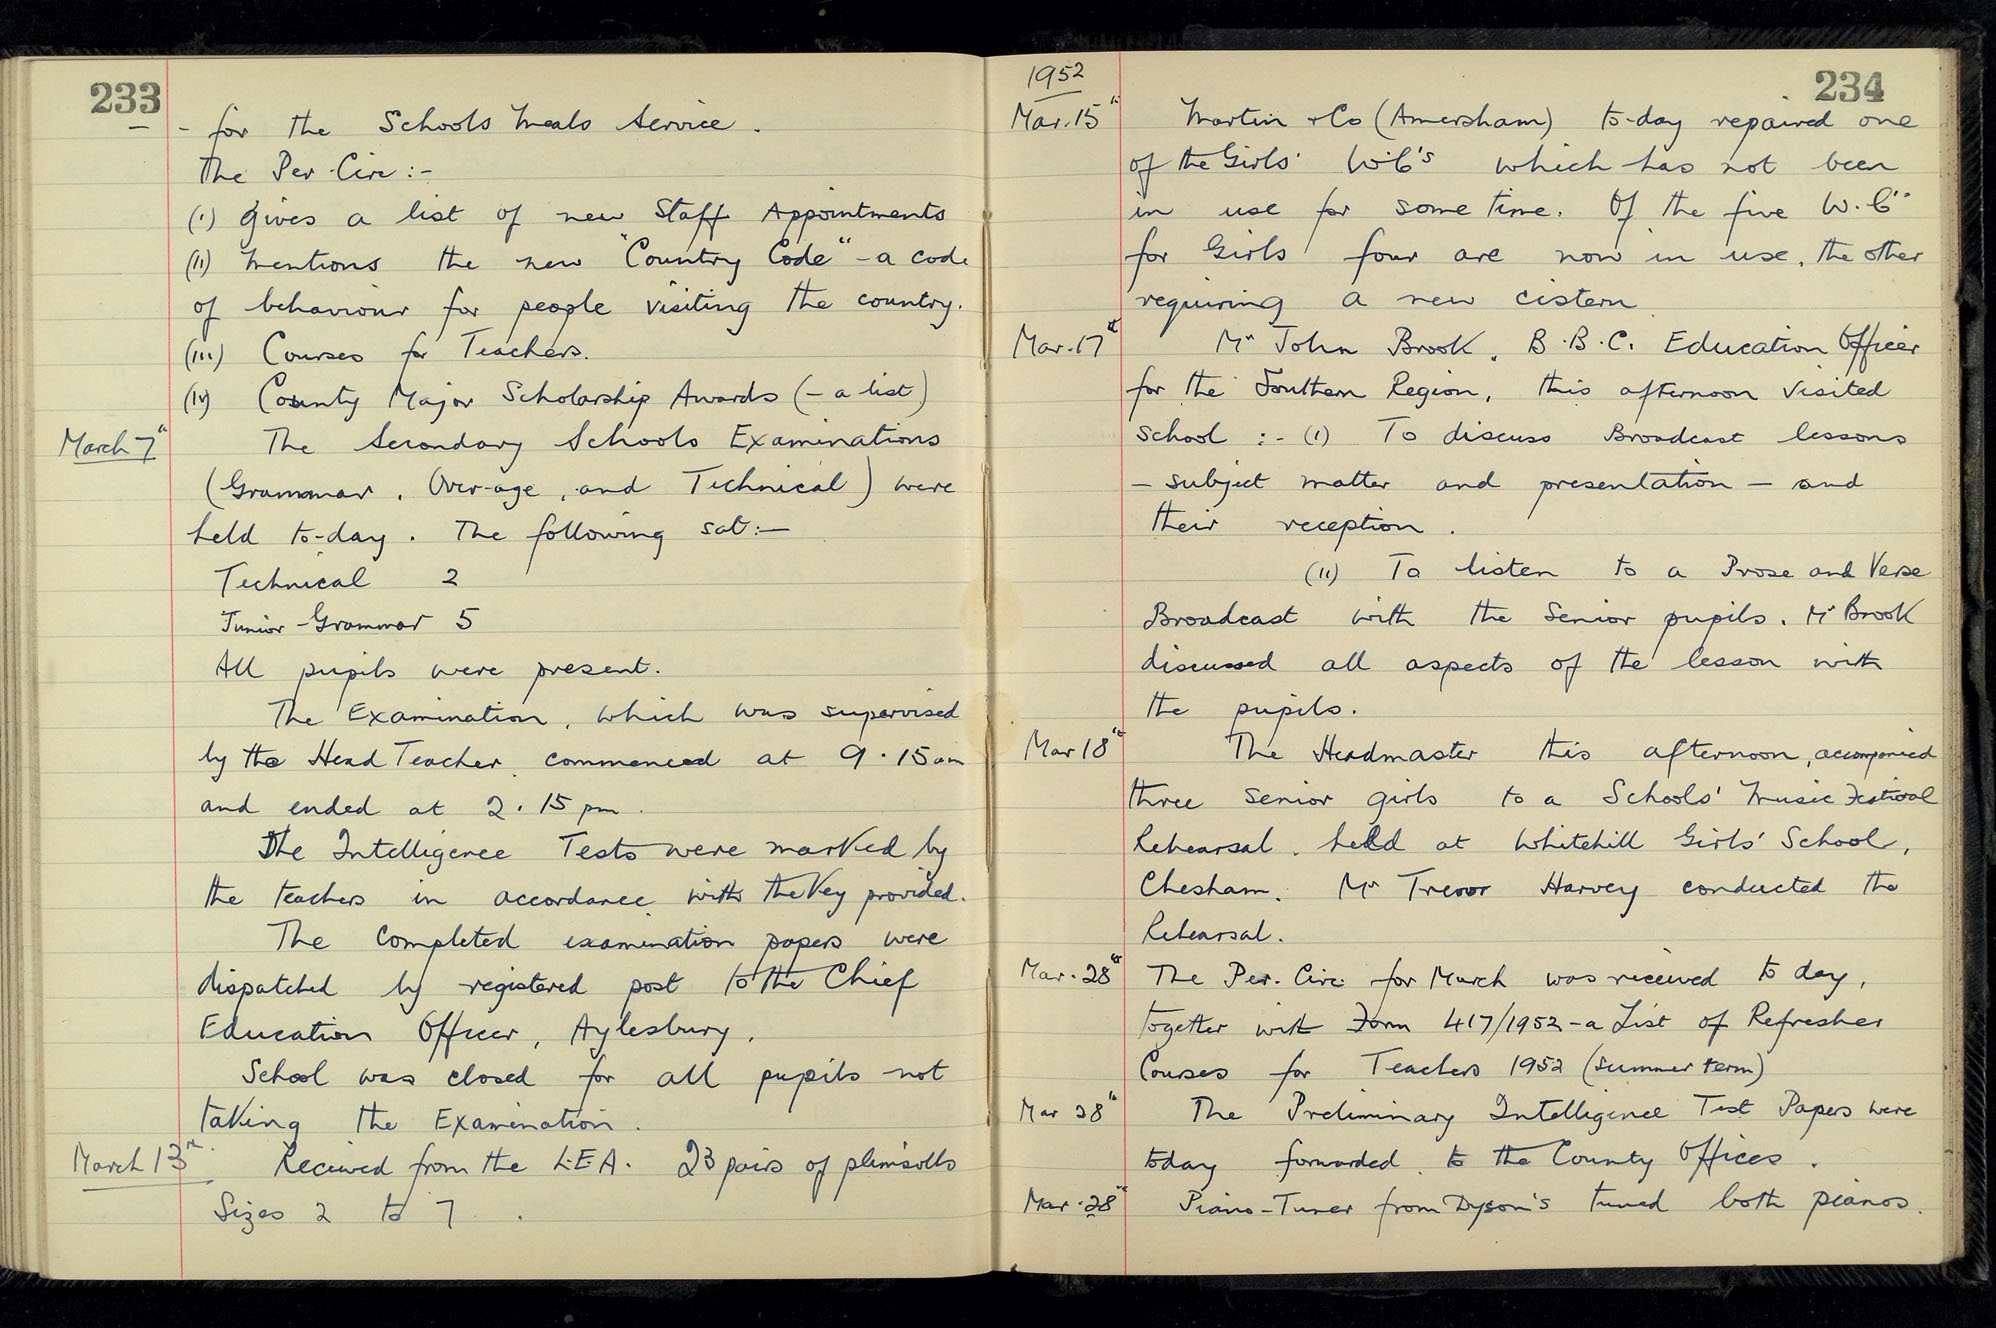 233
- for the Schools Meals Service.
The Per. Circ :-
(i) Gives a list of new Staff Appointments
(ii) Mentions the new "Country Code" - a code
of behaviour for people visiting the country.
(iii) Courses for Teachers.
(iv) County Major Scholarship Awards (- a list)
March 7th The Secondary Schools Examinations
(Grammar, Over-age, and Technical) were
held to-day. The following sat :-
Technical 2
Junior-Grammar 5
All pupils were present.
The Examination, which was supervised
by the Head Teacher, commenced at 9.15 am
and ended at 2.15 pm.
The Intelligence Tests were marked by
the teachers in accordance with the Key provided.
The completed examination papers were
dispatched by registered post to the Chief
Education Officer, Aylesbury.
School was closed for all pupils not
taking the Examination.
March 13th Received from the L.E.A. 23 pairs of plimsolls
Sizes 2 to 7.
234
1952
Mar. 15th Martin + Co (Amersham) to-day repaired one
of the Girls' W.C's which has not been
in use for some time. Of the five W.C's
for Girls four are now in use, the other
requiring a new cistern
Mar. 17th Mr John Brook, B.B.C. Education Officer
for the Southern Region, this afternoon visited
School :- (i) To discuss Broadcast lessons
- subject matter and presentation - and
their reception.
(ii) To listen to a Prose and Verse
Broadcast with the Senior pupils. Mr Brook
discussed all aspects of the lesson with
the pupils.
Mar 18th The Headmaster this afternoon, accompanied
three senior girls to a Schools' Music Festival
Rehearsal, held at Whitehill Girls' School,
Chesham. Mr Trevor Harvey conducted the
Rehearsal.
Mar. 28th The Per. Circ for March was received to day,
together with Form 417/1952 - a List of Refresher
Courses for Teachers 1952 (Summer term)
Mar 28th The Preliminary Intelligence Test Papers were
today forwarded to the County Offices.
Mar. 28th Piano-Tuner from Dyson's tuned both pianos.